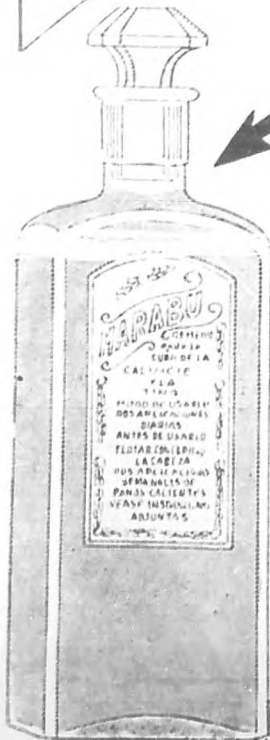 HARABU
REMEDIO
PARA LA
CURA DE LA
CALVICIE
Y LA
TIÑA
MODO DE USARLO
DOS APLICACIONES
DIARIAS
ANTES DE USARLO
FROTAR
LA CABEZA
DOS APLICACIONES
SEMANALES DE
PAÑOS CALIENTES
VEASE
ADJUNTAS